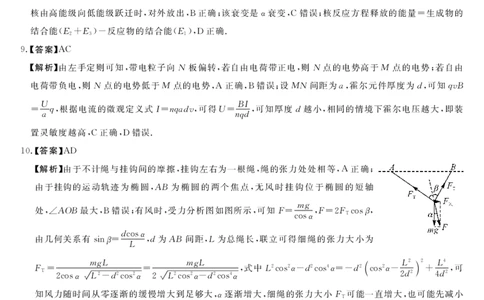 核由高能级向低能级跃迁时,对外放出,B正确;该衰变是α衰变,C错误;核反应方程释放的能量=生成物的
结合能(E₂+E₃)-反应物的结合能(E₁),D正确.
9.【答案】AC
【解析】由左手定则可知,带电粒子向N板偏转,若自由电荷带正电,则N点的电势高于M点的电势;若自由
电荷带负电,则N点的电势低于M点的电势,A正确,B错误;设MN间距为a,霍尔元件厚度为d,可知qvB
=U/a q,根据电流的微观定义式I=nqadv,可得U=BI/nqd,可知厚度d越小,相同的情境下霍尔电压越大,即装
置灵敏度越高,C正确,D错误.
10.【答案】AD
【解析】由于不计绳与挂钩间的摩擦,挂钩左右为一根绳,绳的张力处处相等,A正确;
由于挂钩的运动轨迹为椭圆,AB为椭圆的两个焦点,无风时挂钩位于椭圆的短轴
处,∠AOB最大,B错误;有风时,受力分析图如图所示,可知F=mg/cosα,F=2F_T cosβ,
由几何关系有sinβ=dcosα/L,d为AB间距,L为总绳长,联立可得细绳的张力大小为
F_T=mgL/(2cosα√(L²-d²cos²α))=mgL/(2√(L²cos²α-d²cos⁴α)),式中L²cos²α-d²cos⁴α=-d²(cos²α-L²/2d²)²+L⁴/4d²,可
知风力随时间从零逐渐的缓慢增大到足够大,α逐渐增大,细绳的张力大小F_T可能一直增大,也可能先减小
A
B
F_T
F_T
F风
α
mg
F